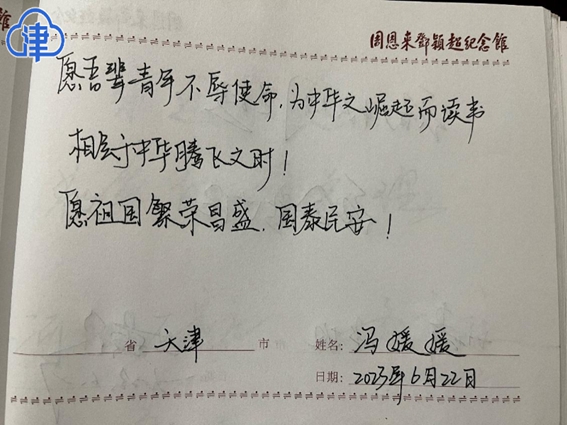 津
周恩来邓颖超纪念馆
愿吾辈青年不辱使命,为中华之崛起而读书
相会于中华腾飞之时!
愿祖国繁荣昌盛,国泰民安!
省 天津 市 姓名: 冯媛媛
日期: 2023年6月22日